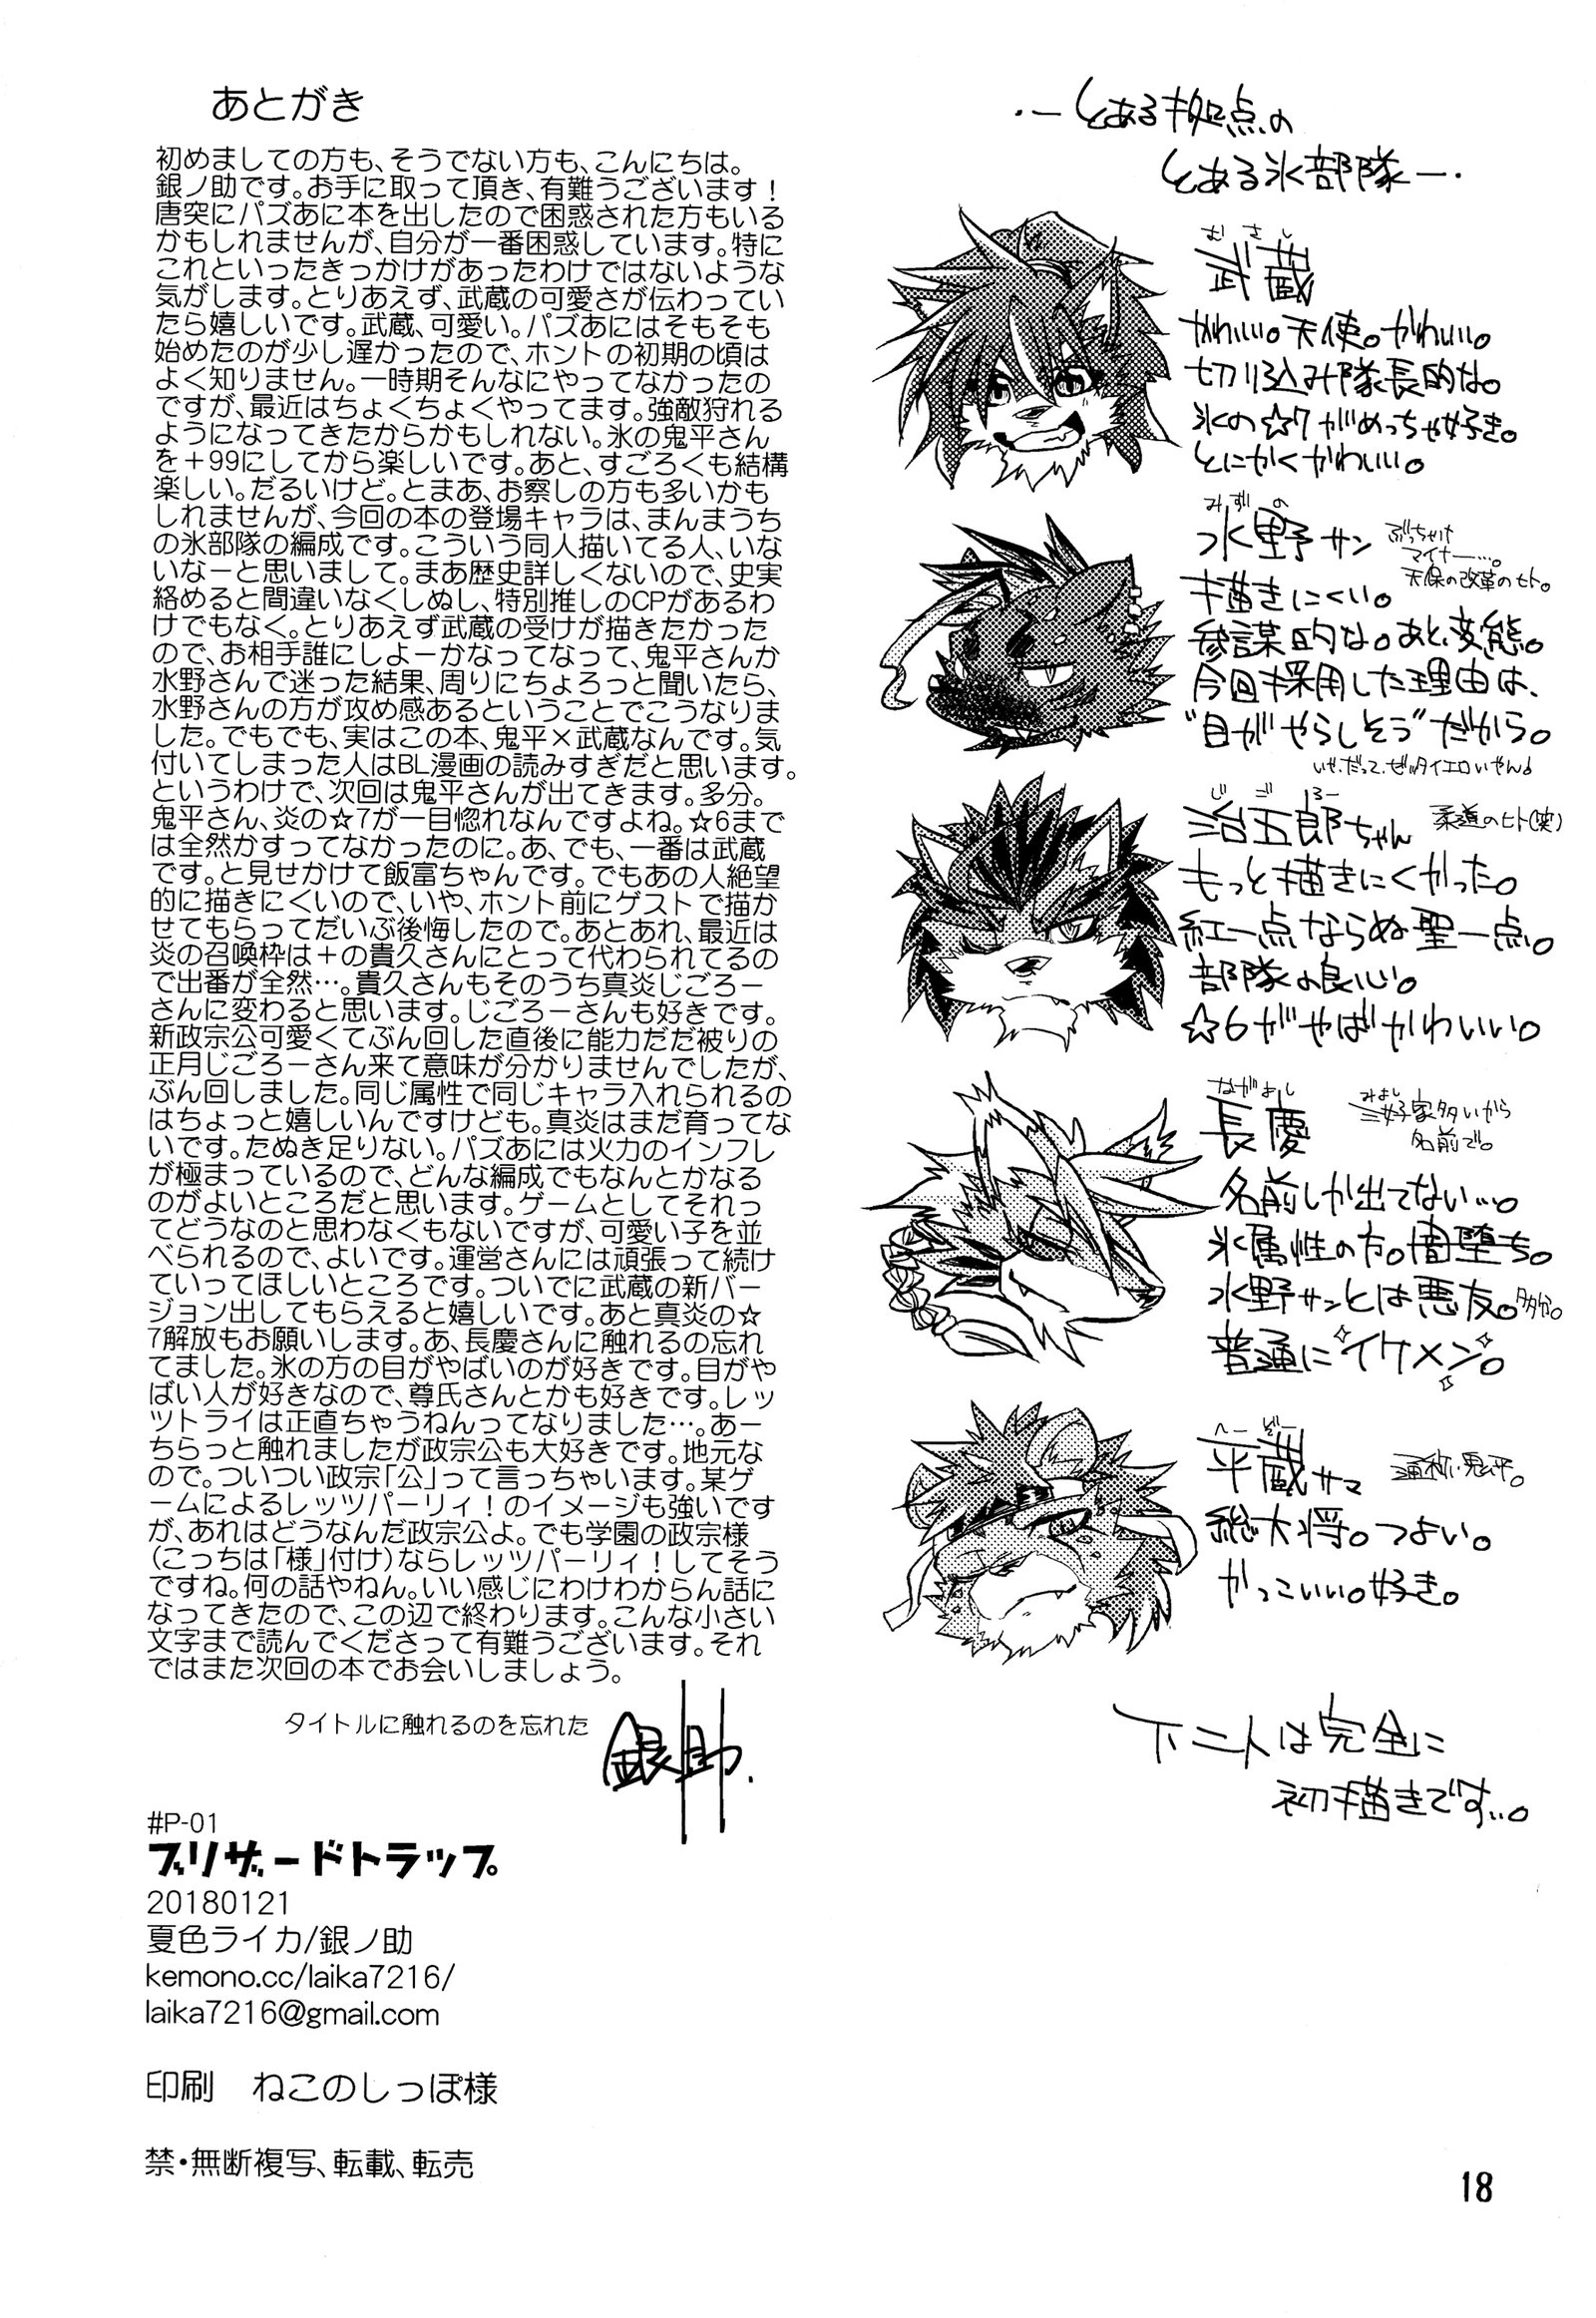 あとがき
初めましての方も、そうでない方も、こんにちは。
銀ノ助です。お手に取って頂き、有難うございます！
唐突にパズあに本を出したので困惑された方もいる
かもしれませんが、自分が一番困惑しています。特に
これといったきっかけがあったわけではないような
気がします。とりあえず、武蔵の可愛さが伝わってい
たら嬉しいです。武蔵、可愛い。パズあにはそもそも
始めたのが少し遅かったので、ホントの初期の頃は
よく知りません。一時期そんなにやってなかったの
ですが、最近はちょくちょくやってます。強敵狩れる
ようになってきたからかもしれない。氷の鬼平さん
を＋99にしてから楽しいです。あと、すごろくも結構
楽しい。だるいけど。とまあ、お察しの方も多いかも
しれませんが、今回の本の登場キャラは、まんまうち
の氷部隊の編成です。こういう同人描いてる人、いな
いなーと思いまして。まあ歴史詳しくないので、史実
絡めると間違いなくしぬし、特別推しのCPがあるわ
けでもなく。とりあえず武蔵の受けが描きたかった
ので、お相手誰にしよーかなってなって、鬼平さんか
水野さんで迷った結果、周りにちょろっと聞いたら、
水野さんの方が攻め感あるということでこうなりま
した。でもでも、実はこの本、鬼平×武蔵なんです。気
付いてしまった人はBL漫画の読みすぎだと思います。
というわけで、次回は鬼平さんが出てきます。多分。
鬼平さん、炎の☆7が一目惚れなんですよね。☆6まで
は全然かすってなかったのに。あ、でも、一番は武蔵
です。と見せかけて飯富ちゃんです。でもあの人絶望
的に描きにくいので、いや、ホント前にゲストで描か
せてもらってだいぶ後悔したので。あとあれ、最近は
炎の召喚枠は＋の貴久さんにとって代わられてるの
で出番が全然…。貴久さんもそのうち真炎じごろー
さんに変わると思います。じごろーさんも好きです。
新政宗公可愛くてぶん回した直後に能力だだ被りの
正月じごろーさん来て意味が分かりませんでしたが、
ぶん回しました。同じ属性で同じキャラ入れられるの
はちょっと嬉しいんですけども。真炎はまだ育ってな
いです。たぬき足りない。パズあには火力のインフレ
が極まっているので、どんな編成でもなんとかなる
のがよいところだと思います。ゲームとしてそれっ
てどうなのと思わなくもないですが、可愛い子を並
べられるので、よいです。運営さんには頑張って続け
ていってほしいところです。ついでに武蔵の新バー
ジョン出してもらえると嬉しいです。あと真炎の☆
7解放もお願いします。あ、長慶さんに触れるの忘れ
てました。氷の方の目がやばいのが好きです。目がや
ばい人が好きなので、尊氏さんとかも好きです。レッ
ツトライは正直ちゃうねんってなりました…。あー
ちらっと触れましたが政宗公も大好きです。地元な
ので。ついつい政宗「公」って言っちゃいます。某ゲ
ームによるレッツパーリィ！のイメージも強いです
が、あれはどうなんだ政宗公よ。でも学園の政宗様
（こっちは「様」付け）ならレッツパーリィ！してそう
ですね。何の話やねん。いい感じにわけわからん話に
なってきたので、この辺で終わります。こんな小さい
文字まで読んでくださって有難うございます。それ
ではまた次回の本でお会いしましょう。
タイトルに触れるのを忘れた
銀ノ助.
#P-01
ブリザードトラップ
20180121
夏色ライカ/銀ノ助
kemono.cc/laika7216/
laika7216@gmail.com
印刷　ねこのしっぽ様
禁・無断複写、転載、転売
・ーとある拠点の
とある氷部隊ー・
むさし
武蔵
かわいい。天使。かわいい。
切り込み隊長的な。
氷の☆7がめっちゃ好き。
とにかくかわいい。
みずの
水野サン
ぶっちゃけ
マイナー…。
天保の改革のヒト。
描きにくい。
参謀的な。あと、変態。
今回採用した理由は、
"目がやらしそう"だから。
いや、だって、ぜッタイエロいやん♪
じごろー
治五郎ちゃん
柔道のヒト(笑)
もっと描きにくかった。
紅一点ならぬ聖一点。
部隊の良心。
☆6がやばかわいい。
ながよし
長慶
みよし
三好家多いから
名前で。
名前しか出てない…。
氷属性の方。闇堕ち。
水野サンとは悪友。多分。
普通にイケメン。
へーぞー
平蔵サマ
通称・鬼平。
総大将。つよい。
かっこいい。好き。
下二人は完全に
初描きです…。
18